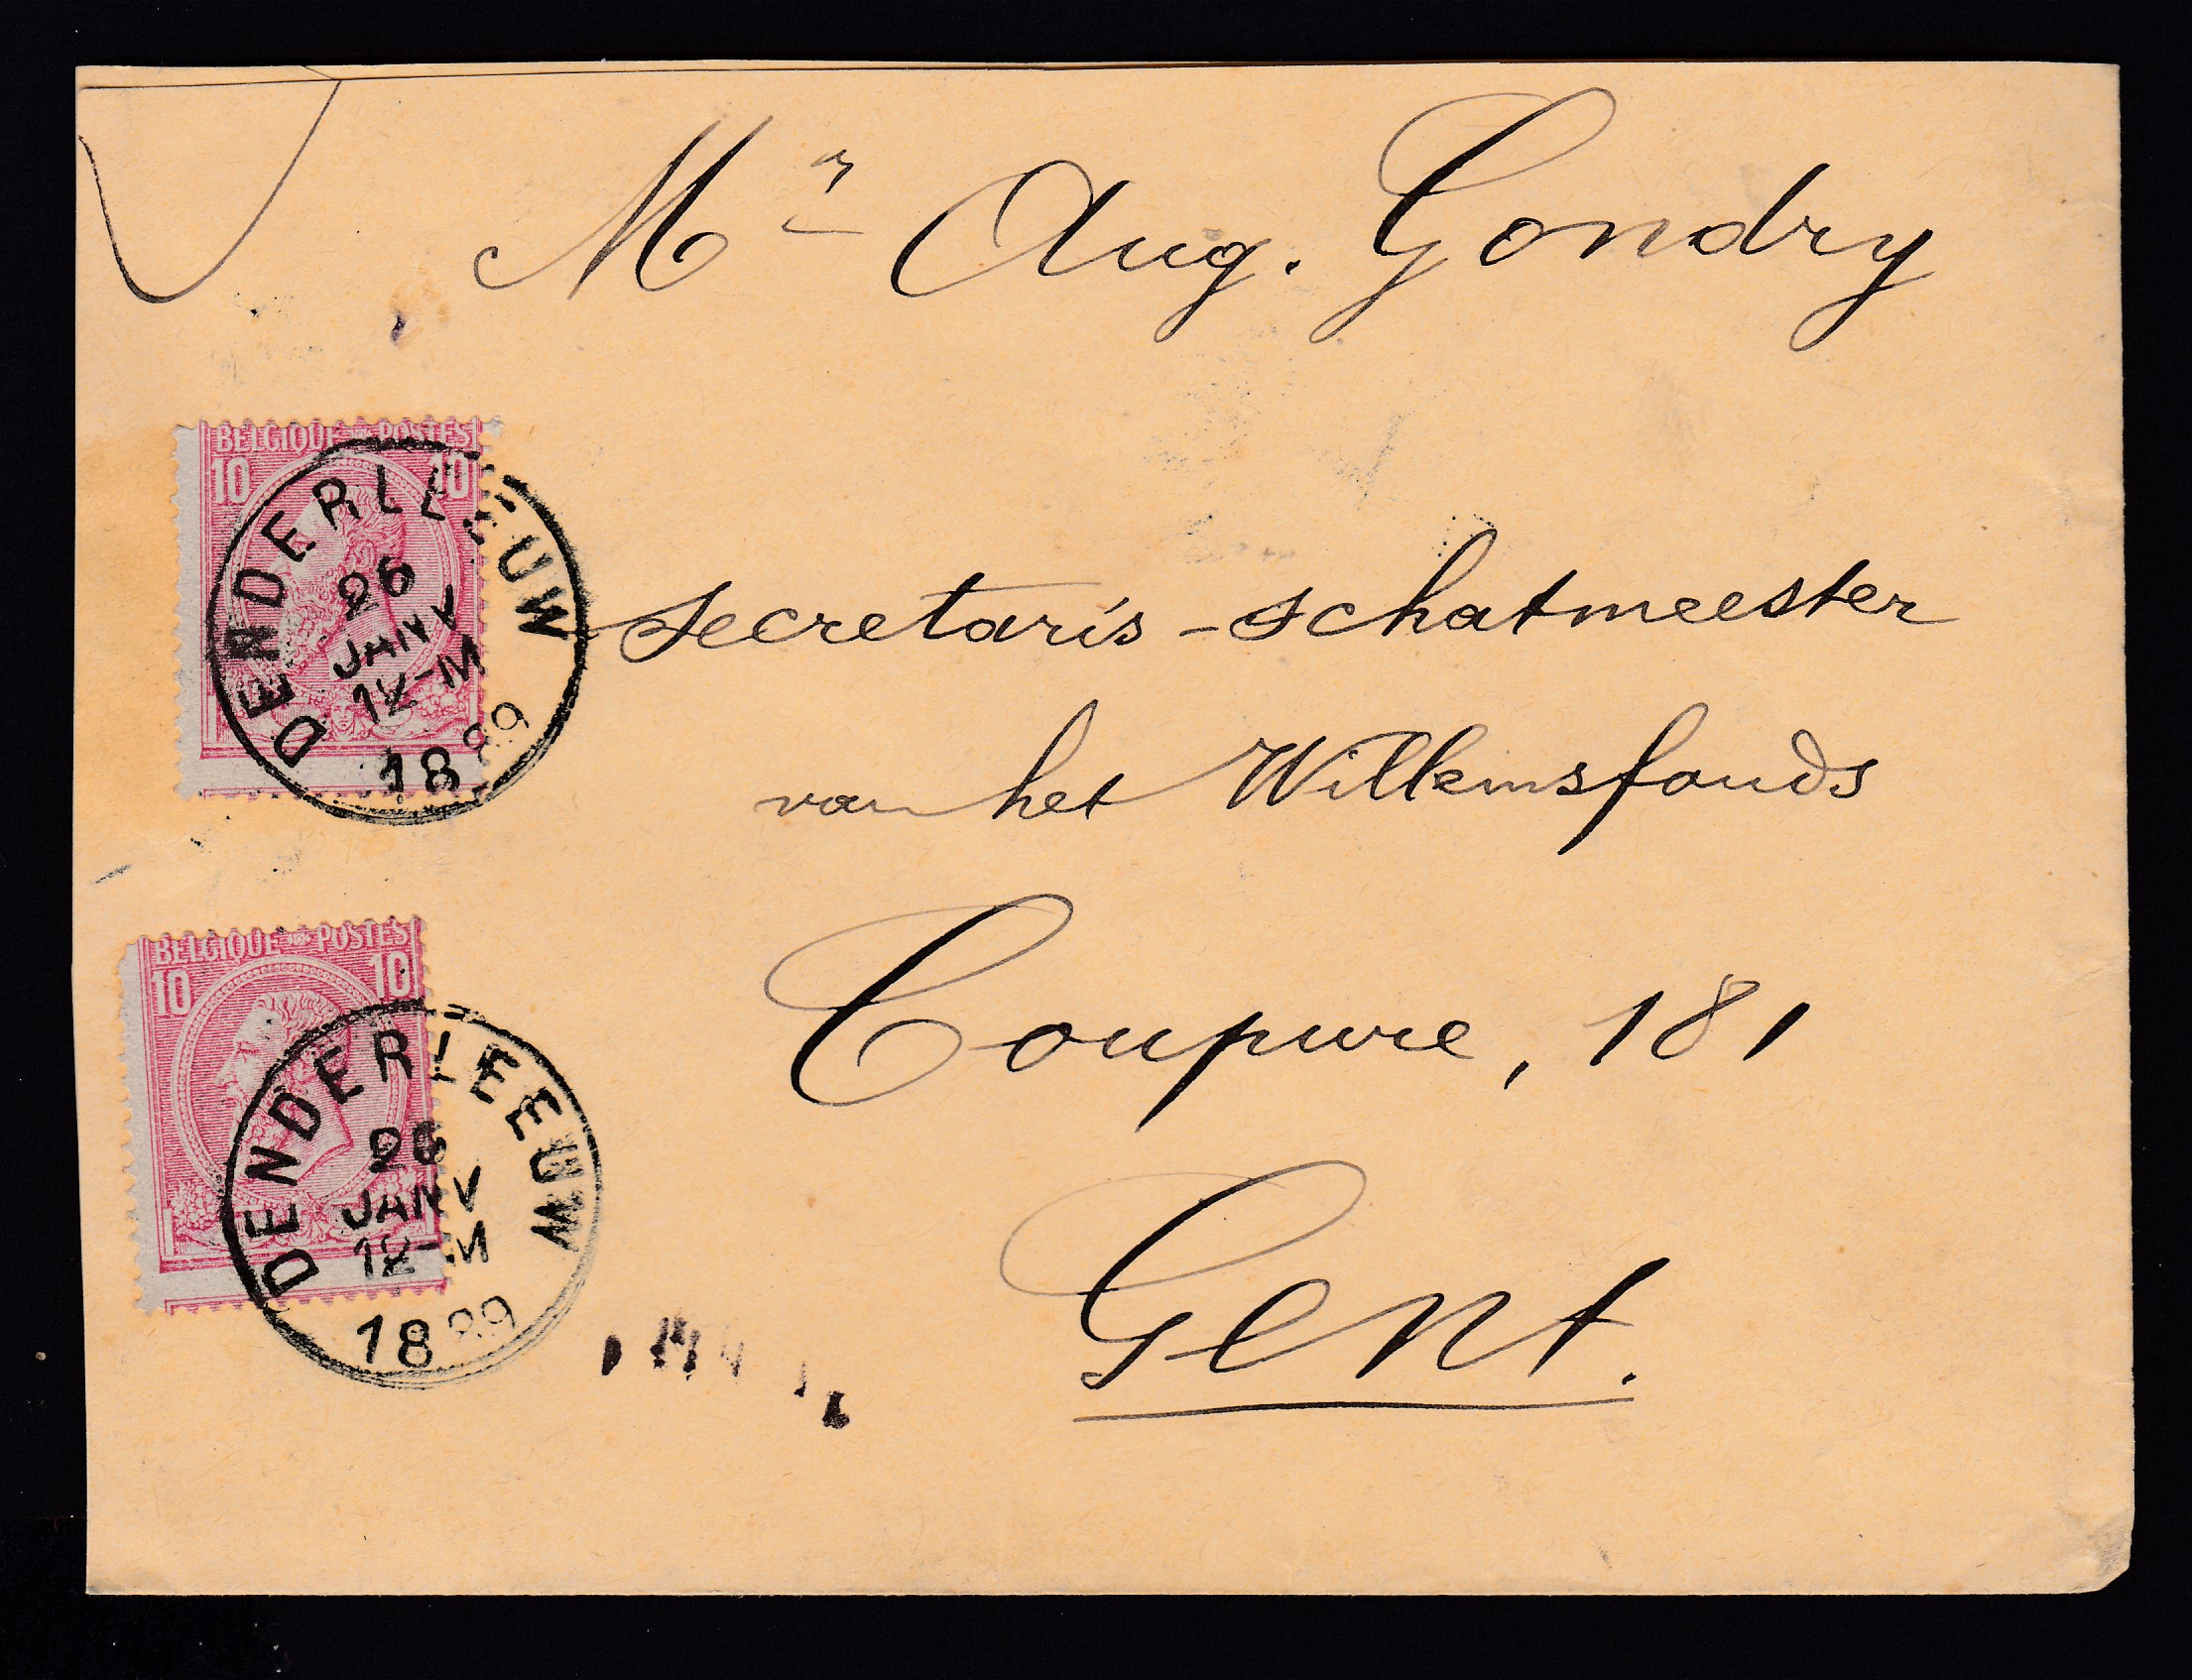 Mr Aug. Gondry
secretaris-schatmeester
van het Willemsfonds
Coupure, 181
Gent.
BELGIQUE POSTES
10 10
DENDERLEEUW
26
JANV
12-M
1889
BELGIQUE POSTES
10 10
DENDERLEEUW
26
JANV
12-M
1889